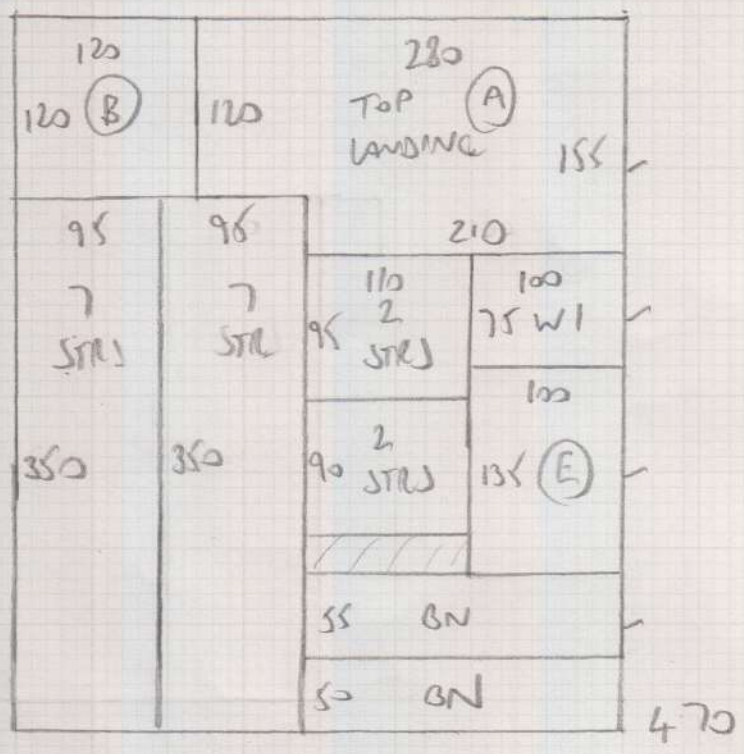 120
120 B
280
120 TOP A
LANDING 155
210
95
7
STRS
350
95
7
STR
350
110
95 2
STRS
100
75 W1
2
90 STRS
100
135 E
55 BN
50 BN
470